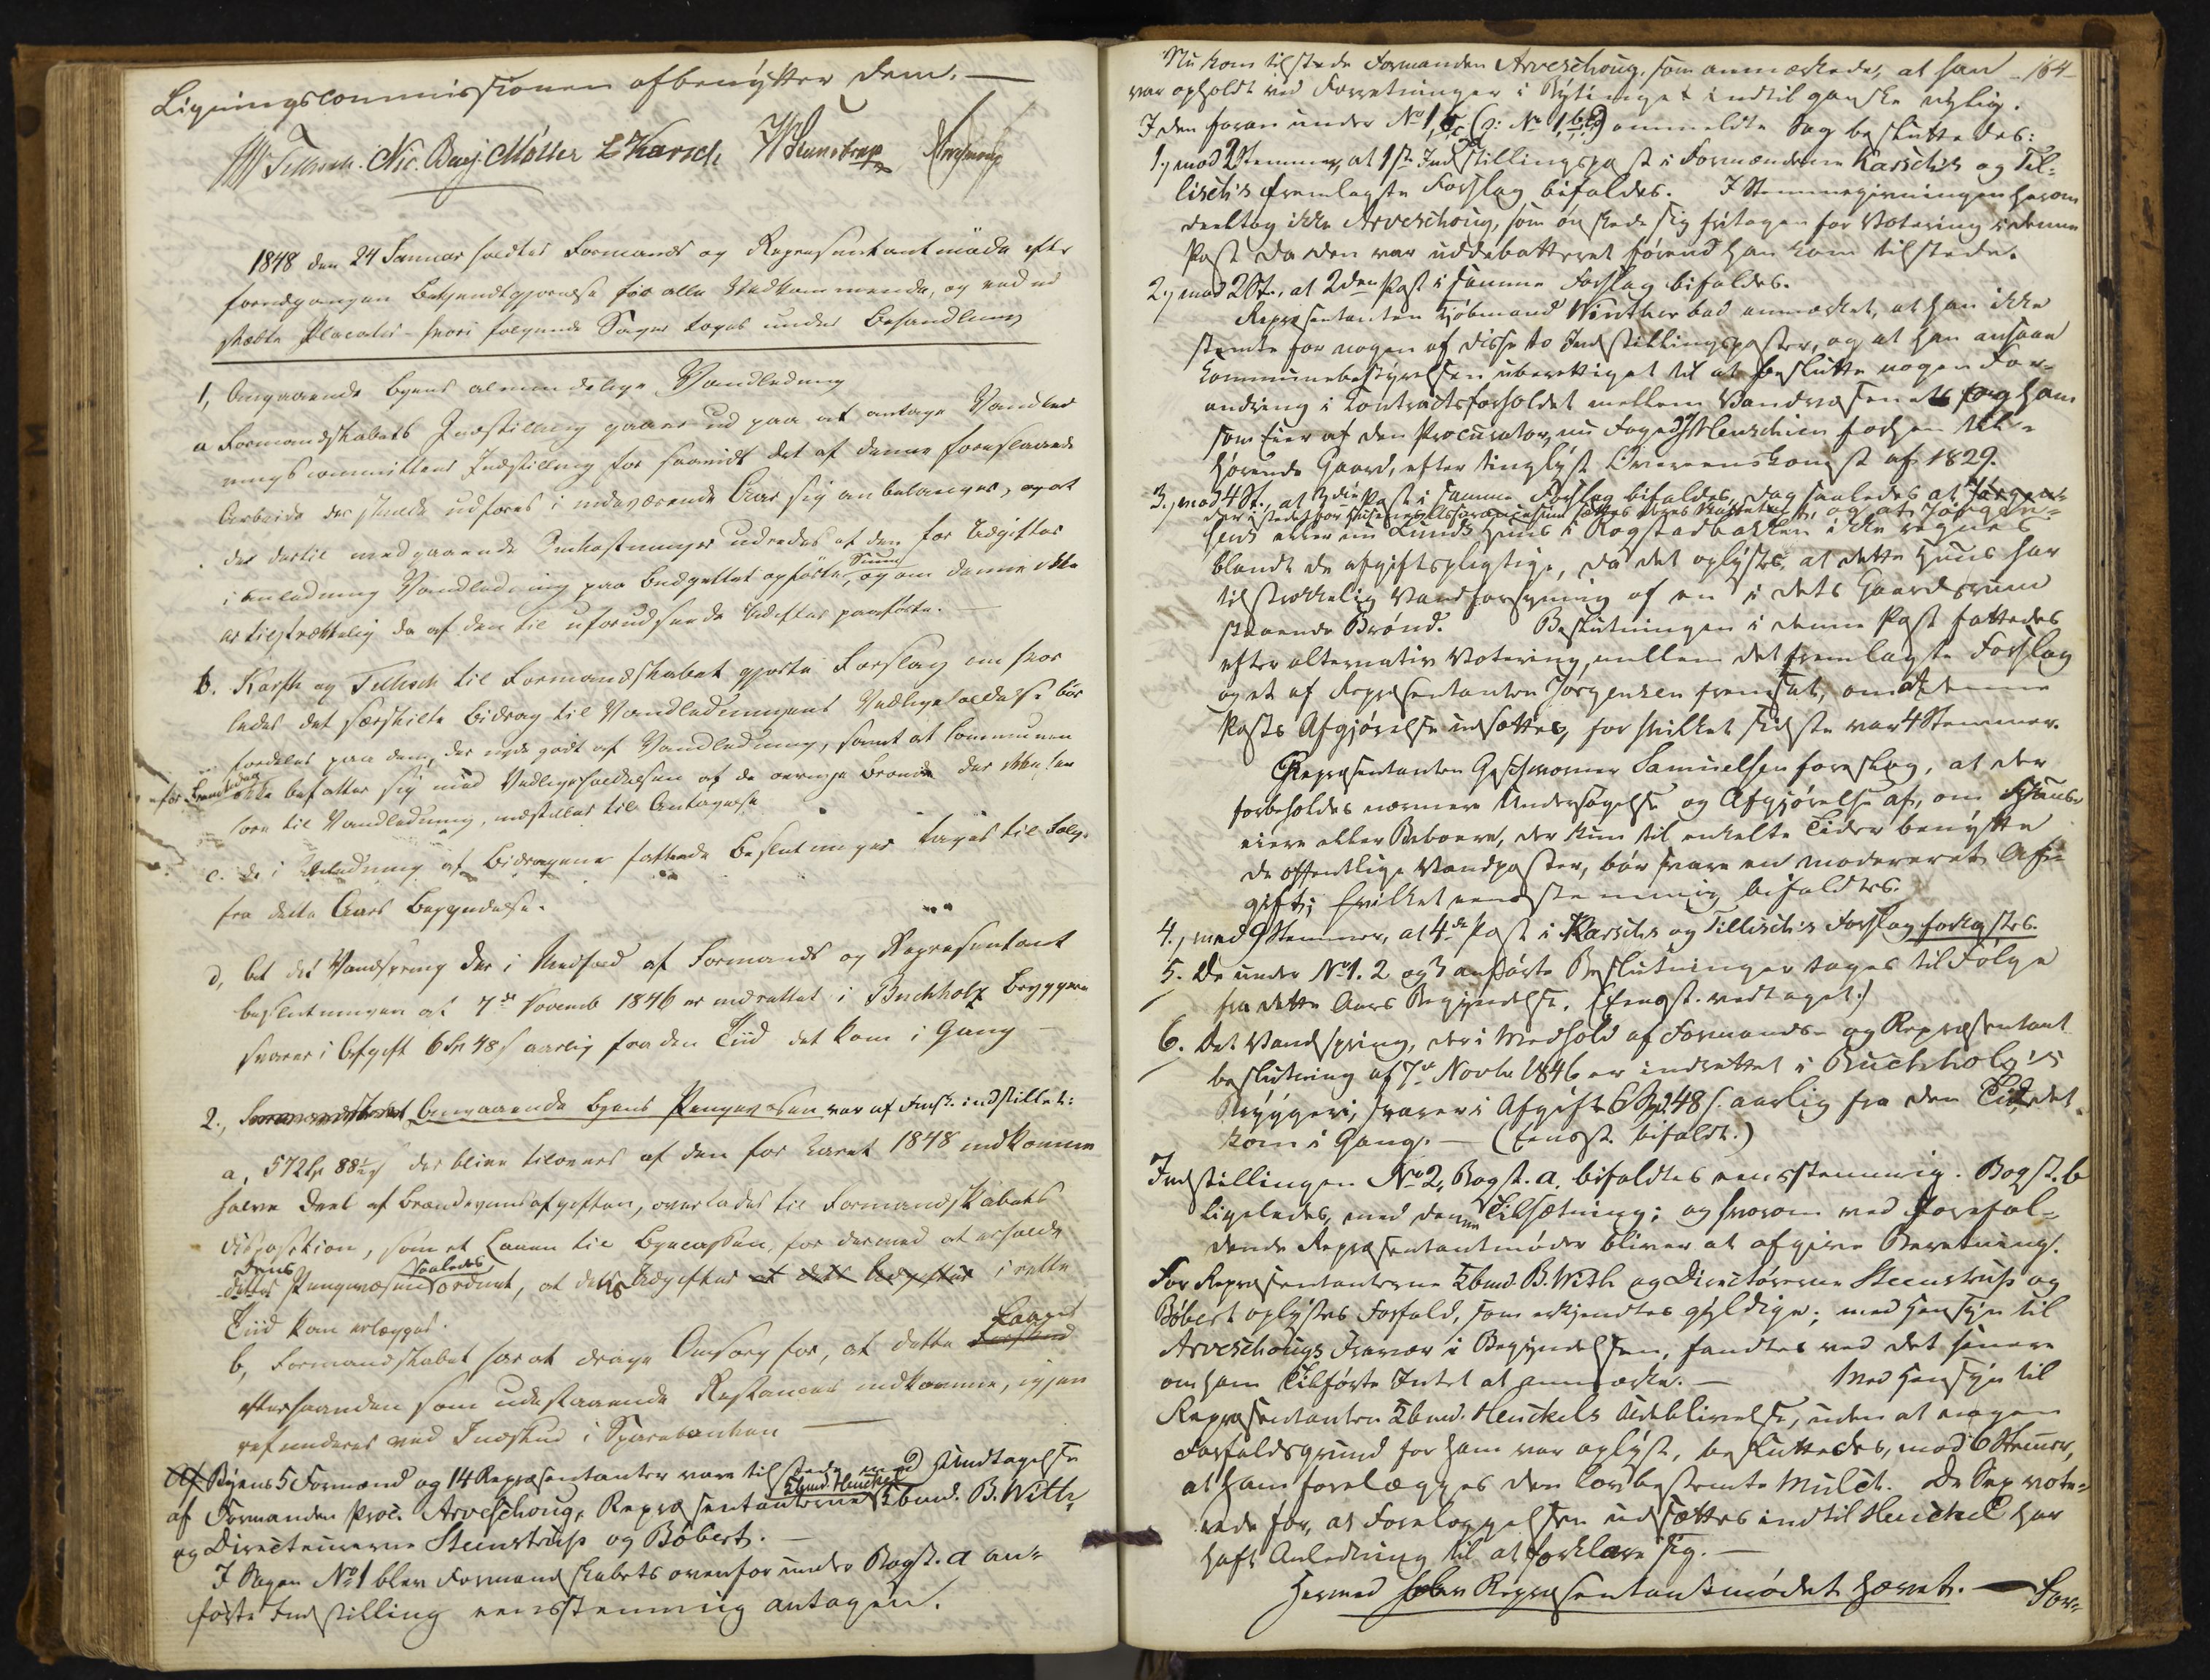 Ligningscommissionen afbenytter dem. —
Nic. Bay Møller L Karsch
1848 den 24 Januar holdtes Formands og Repræsentantmøde efter
foregangen Bekjendtgjørelse for alle Vedkommende, og ved ud
stædte Placater hvori følgende Sager toges under Behandling
1, Angaaende Byens almindelige Vandledning
a Formandskabets Indstilling gaaer ud paa at antage Vandled
ningscommitteens Indstilling for saavidt det af denne foreslaaede
Arbeide der skulde udføres i indeværende Aar sig anbelanger, og at
de dertil medgaaende Omkostninger udredes af den for Udgifter
i Anledning Vandledning paa Budgettet opførte Summa, og om denne ikke
er tilstrækkelig da af den til uforudseende Udgifter paaførte. —
b. Karsch og Tillisch til Formandskabet gjorte Forslag om hvor
ledes det særskilte Bidrag til Vandledningens Vedligeholdelse bør
fordeles paa dem, der nyde godt af Vandledning, samt at Communen
for Fremtiden ikke befatter sig med Vedligeholdelsen af de øvrige Brønde der ikke høre
til Vandledning, indstilles til Antagelse
c. de i Anledning af Bidragene fattede Beslutninger tages til Følge
fra dette Aars Begyndelse.
d, lit det Vandspring der i Medhold af Formands og Repræsentant
beslutningen af 7de Novemb 1846 er indrettet i Buchholz Bryggeri
svarer i Afgift 6 Sp 48 s aarlig fra den Tiid det kom i Gang —
2., Formandskabet Angaaende Byens Pengevæsen var af Fmsk. indstillet:
a, 572 Sp 88½ s der bliver tilovers af den for Aaret 1848 indkomne
halve Deel af Brændeviinsafgiften, overlades til Formandskabets
Disposition, som et Laan til Byecassen, for derved at erholde
dettes dens Pengevæsen saaledes ordnet, at dets Udgifter at dets Udgifter i rette
Tiid kan erlægges.
b, Formandskabet har at drage Omsorg for, at dette Forskud Laan
efterhaanden som udestaaende Restancer indkomme, igjen
refunderes ved Indskud i Sparebanken —
Af Byens 5 Formænd og 14 Repræsentanter vare tilstede med Undtagelse
af Formanden Proc. Arveschoug, Repræsentanterne Kbmd. Heuckel Kbmd. B. With,
og Directeurerne Steenstrup og Bøbert. —
I Sagen No 1 blev Formandskabets ovenfor under Bogst. a an-
førte Indstilling eensstemmig antagen.
- 164 -
Nu kom tilstede Formanden Arveschoug, som anmærkede, at han
var opholdt ved Forretninger i Bytinget indtil ganske nylig.
I den foran under No 1, b, c (o: No 1, b, c) ommeldte Sag besluttedes:
1, mod 2 Stemmer, at 1ste Indstillingspost i Formændene Karsch's og Til-
lisch's fremlagte Forslag bifaldes. I Stemmegivningen herom
deeltog ikke Arveschoug, som ønskede sig fritagen for Votering i denne
Post da den var uddebatteret førend han kom tilstede.
2, mod 2 St., at 2den Post i samme Forslag bifaldes.
Repræsentanten Kjøbmand Winther bad anmærket, at han ikke
stemte for nogen af disse to Indstillingsposter, og at han ansaae
Kommunebestyrelsen uberettiget til at beslutte nogen For-
andring i Contractsforholdet mellem Vandvæsenet og ham
som Eier af den Procurator, nu Foged Heuschien forhen til-
hørende Gaard, efter tinglyst Overeenskomst af 1829.
3, mod 4 St., at 3die Post i samme Forslag bifaldes, dog saaledes at Jørgen-
der istedet for Husenes Assurancesum sættes deres Skattetaxt, og at Jørgen-
sens eller nu Lunds Huus i Rogstadbakken ikke regnes
blandt de afgiftspligtige, da det oplystes, at dette Huus har
tilstrækkelig Vandforsyning af en i dets Gaardsrum
staaende Brønd. Beslutningen i denne Post fattedes
efter alternativ Votering, mellem det fremlagte Forslag
og et af Repræsentanten Jørgensen fremsat, om at denne
Posts Afgjørelse udsættes, for hvilket sidste var 4 Stemmer.
Repræsentanten Geschworner Samuelsen foreslog, at der
forbeholdes nærmere Undersøgelse og Afgjørelse af, om Huus-
eiere eller Beboere, der kun til enkelte Tider benytte
de offentlige Vandposter, bør svare en modereret Af-
gift; hvilket eensstemmig bifaldtes.
4., med 9 Stemmer, at 4de Post i Karschs og Tillisch's Forslag forkastes.
5. De under No 1. 2 og 3 anførte Beslutninger tages til Følge
fra dette Aars Begyndelse. (Eensst. vedtaget.)
6. Det Vandspring, der i Medhold af Formands- og Repræsentant
beslutning af 7de Novbr 1846 er indrettet i Buchholz's
Bryggeri, svarer i Afgift 6 Spd 48 s. aarlig fra den Tid det
kom i Gang. — (Eensst. bifaldt.)
Indstillingen No 2, Bogst. a. bifaldtes eensstemmig. Bogst. b
ligeledes, med denne Tilsætning: og hvorom ved forefal-
dende Repræsentantmøder bliver at afgive Beretning.
For Repræsentanterne Kbmd. B. With og Directørerne Steenstrup og
Bøbert oplystes Forfald, som erkjendtes gyldige; med Hensyn til
Arveschougs Fravær i Begyndelsen, fandtes ved det senere
om ham Tilførte Intet at anmærke. — Med Hensyn til
Repræsentanten Kbmd. Heuckels Udeblivelse, uden at nogen
Forfaldsgrund for ham var oplyst, besluttedes, mod 6 Stemmer,
at ham forelægges den lovbestemte Mulct. De Sex vote-
rede for, at Forelæggelsen udsættes indtil Heuckel har
haft Anledning til at forklare sig. —
Hermed blev Repræsentantmødet hævet. — For-